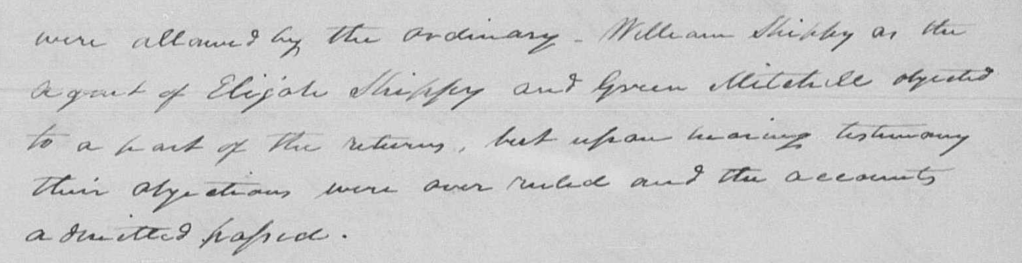 were allowed by the ordinary - William Shippy as the
agent of Elijah Shippy and Green Mitchell objected
to a part of the returns, but upon hearing testimony
their objections were over ruled and the accounts
admitted passed.